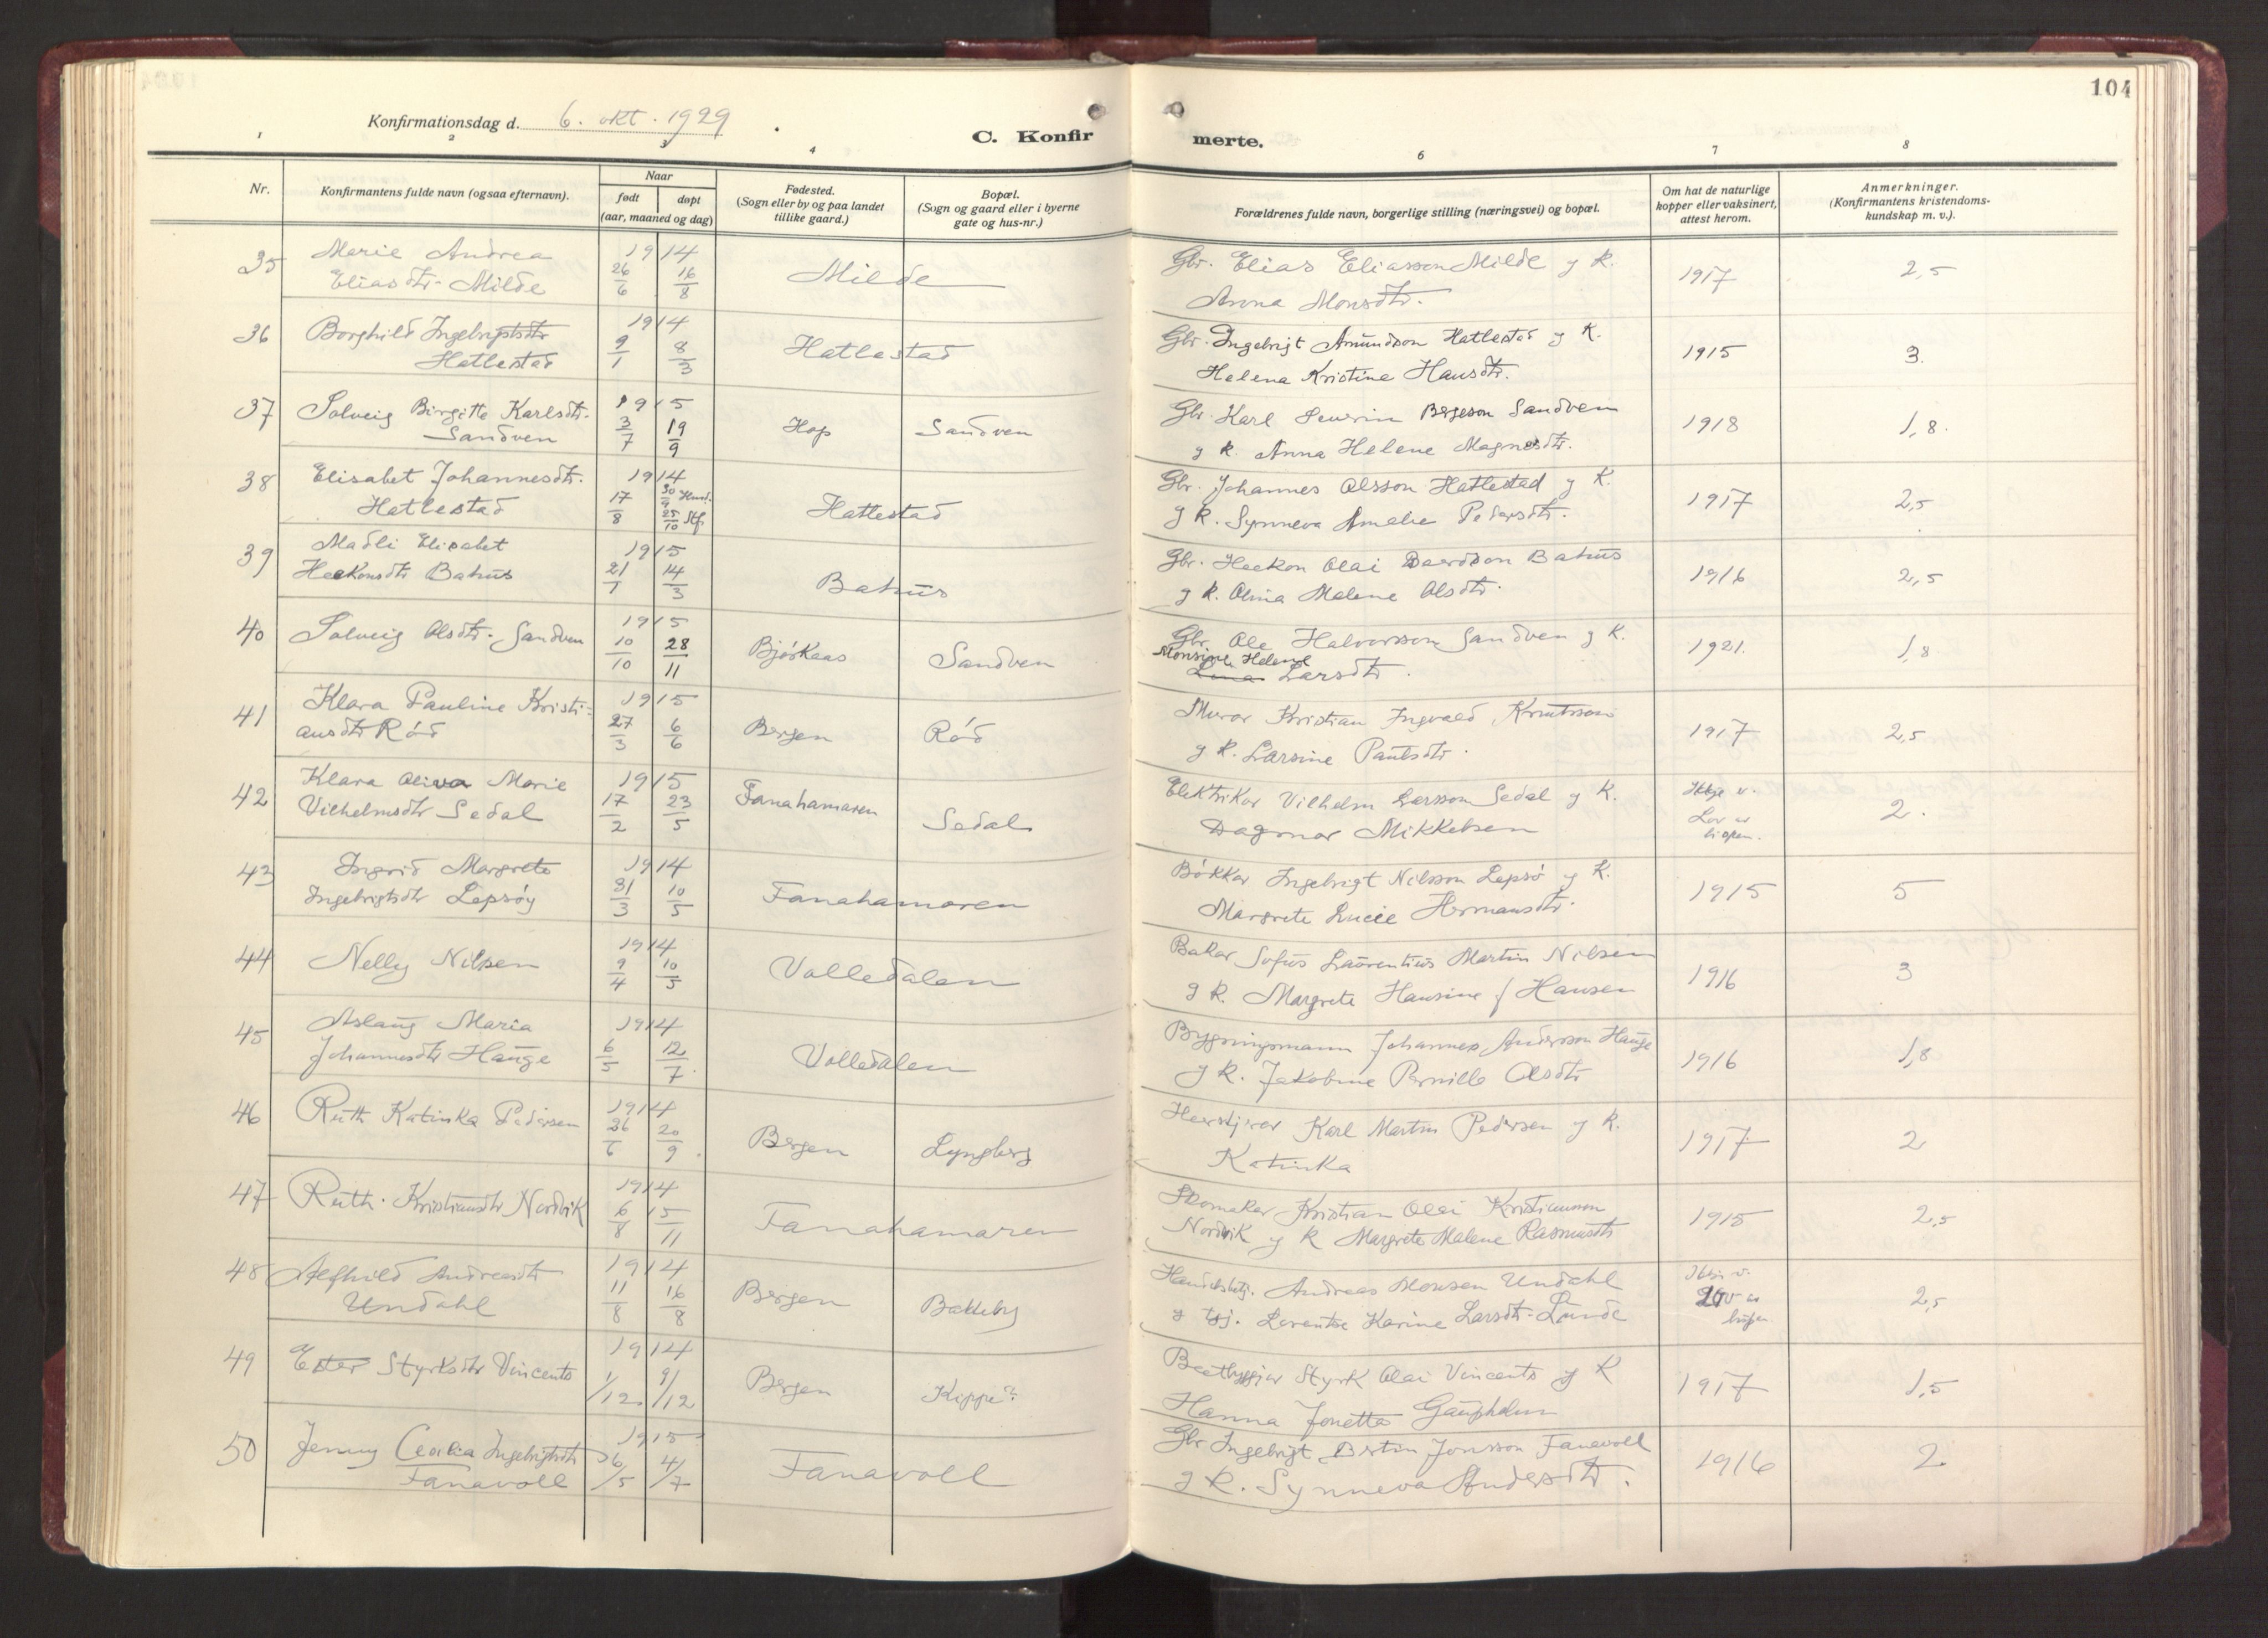 104
Konfirmationsdag d. 6. okt. 1929
C. Konfir merte.
1 2 3 4 6 7 8
Nr.
Konfirmantens fulde navn (ogsaa efternavn).
Naar
født døpt
(aar, maaned og dag)
Fødested.
(Sogn eller by og paa landet
tillike gaard.)
Bopæl.
(Sogn og gaard eller i byerne
gate og hus-nr.)
Forældrenes fulde navn, borgerlige stilling (næringsvei) og bopæl.
Om hat de naturlige
kopper eller vaksinert,
attest herom.
Anmerkninger.
(Konfirmantens kristendoms-
kundskap m. v.).
35 Marie Andrea 1914 Gbr. Elias Eliasson Milde g k.
Eliasdtr. Milde 26/6 16/8 Milde Anna Monsdtr. 1917 2,5
36 Borghild Ingebrigtsdtr 1914 Gbr. Ingebrigt Amundson Hatlestad g k.
Hatlestad 9/1 8/3 Hatlestad Helena Kristine Hansdtr. 1915 3.
37 Solveig Birgitte Karlsdtr. 1915 Gbr. Karl Severin Bergeson Sandven
Sandven 3/7 19/9 Hop Sandven g k. Anna Helene Magnesdtr. 1918 1,8.
38 Elisabet Johannesdtr. 1914 Gbr. Johannes Olsson Hatlestad g k.
Hatlestad 17/8 30/9 25/10 Stf Hatlestad g k. Synneva Amalie Pedersdtr. 1917 2,5
39 Madli Elisabet 1915 Gbr. Haakon Olai Baardson Bahus
Haakonsdtr Bahus 21/1 14/3 Bahus g k. Olina Malene Olsdtr. 1916 2,5
40 Solveig Olsdtr. Sandven 1915 Gbr. Ole Halvorsson Sandven g k.
10/10 28/11 Bjørkaas Sandven Monsine Helene Larsdtr. 1921. 1,8
41 Klara Pauline Kristi- 1915 Murar Kristian Ingvald Knutsson
ansdtr Rød 27/3 6/6 Bergen Rød g k. Larsine Paulsdtr. 1917 2,5
42 Klara Oliva Marie 1915 Elektrikar Vilhelm Larsson Sedal g k.
Vilhelmsdtr Sedal 17/2 23/5 Fanahamaren Sedal Dagmar Mikkelsen 2.
43 Ingrid Margrete 1914 Bøkkar Ingebrigt Nilsson Lepsø g k.
Ingebrigtsdtr Lepsøy 31/3 10/5 Fanahamaren Margrete Lucie Hermansdtr. 1915 5
44 Nelly Nilsen 1914 Bakar Sofus Laurentius Martin Nilsen
9/4 10/5 Volledalen g k. Margrete Hansine f Hansen 1916 3
45 Aslaug Maria 1914 Bygningsmann Johannes Andersson Hauge
Johannesdtr Hauge 6/5 12/7 Volledalen g k. Jakobine Pernille Olsdtr 1916 1,8
46 Ruth Katinka Pedersen 1914 Karl Martin Pedersen g k.
26/6 20/9 Bergen Lyngberg Katinka 1917 2
47 Ruth Kristiansdtr Nordvik 1914 Skomakar Kristian Olai Kristiansson
6/8 15/11 Fanahamaren Nordvik g k Margrete Malene Rasmusdtr 1915 2,5
48 Alfhild Andreasdtr 1914 Handelsbetj. Andreas Monsen Undahl
Undahl 11/8 16/8 Bergen Bakkeby g tgj. Laurentse Karine Larsdtr. Lunde 2,5
49 Ester Styrksdtr Vincents 1914 Baatbyggjar Styrk Olai Vincents g k
1/12. 9/12 Bergen Kippe? Hanna Jonetta Gaupholm 1917 1,5
50 Jenny Cecilia Ingebrigtsdtr 1915 Gbr Ingebrigt Bertin Jonsson Fanavoll
Fanavoll 26/5 4/7 Fanavoll g k. Synneva Andersdtr. 1916 2.